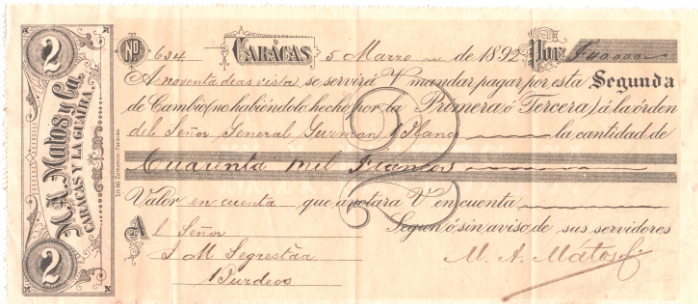 2
M. A. Matos y Ca.
CARACAS Y LA GUAIRA.
2
No 634 CARACAS 5 Marzo de 1892 Por F 40.000
A noventa dias vista se servirá V mandar pagar por esta Segunda
de Cambio (no habiendolo hecho por la Primera ó Tercera) á la órden
del Señor General Guzman Blanco la cantidad de
Cuarenta mil Francos
Valor en cuenta que anotará V en cuenta
Segun ó sin aviso de sus servidores
Al Señor
J M Segrestáa
Burdeos
M. A. Matos
2